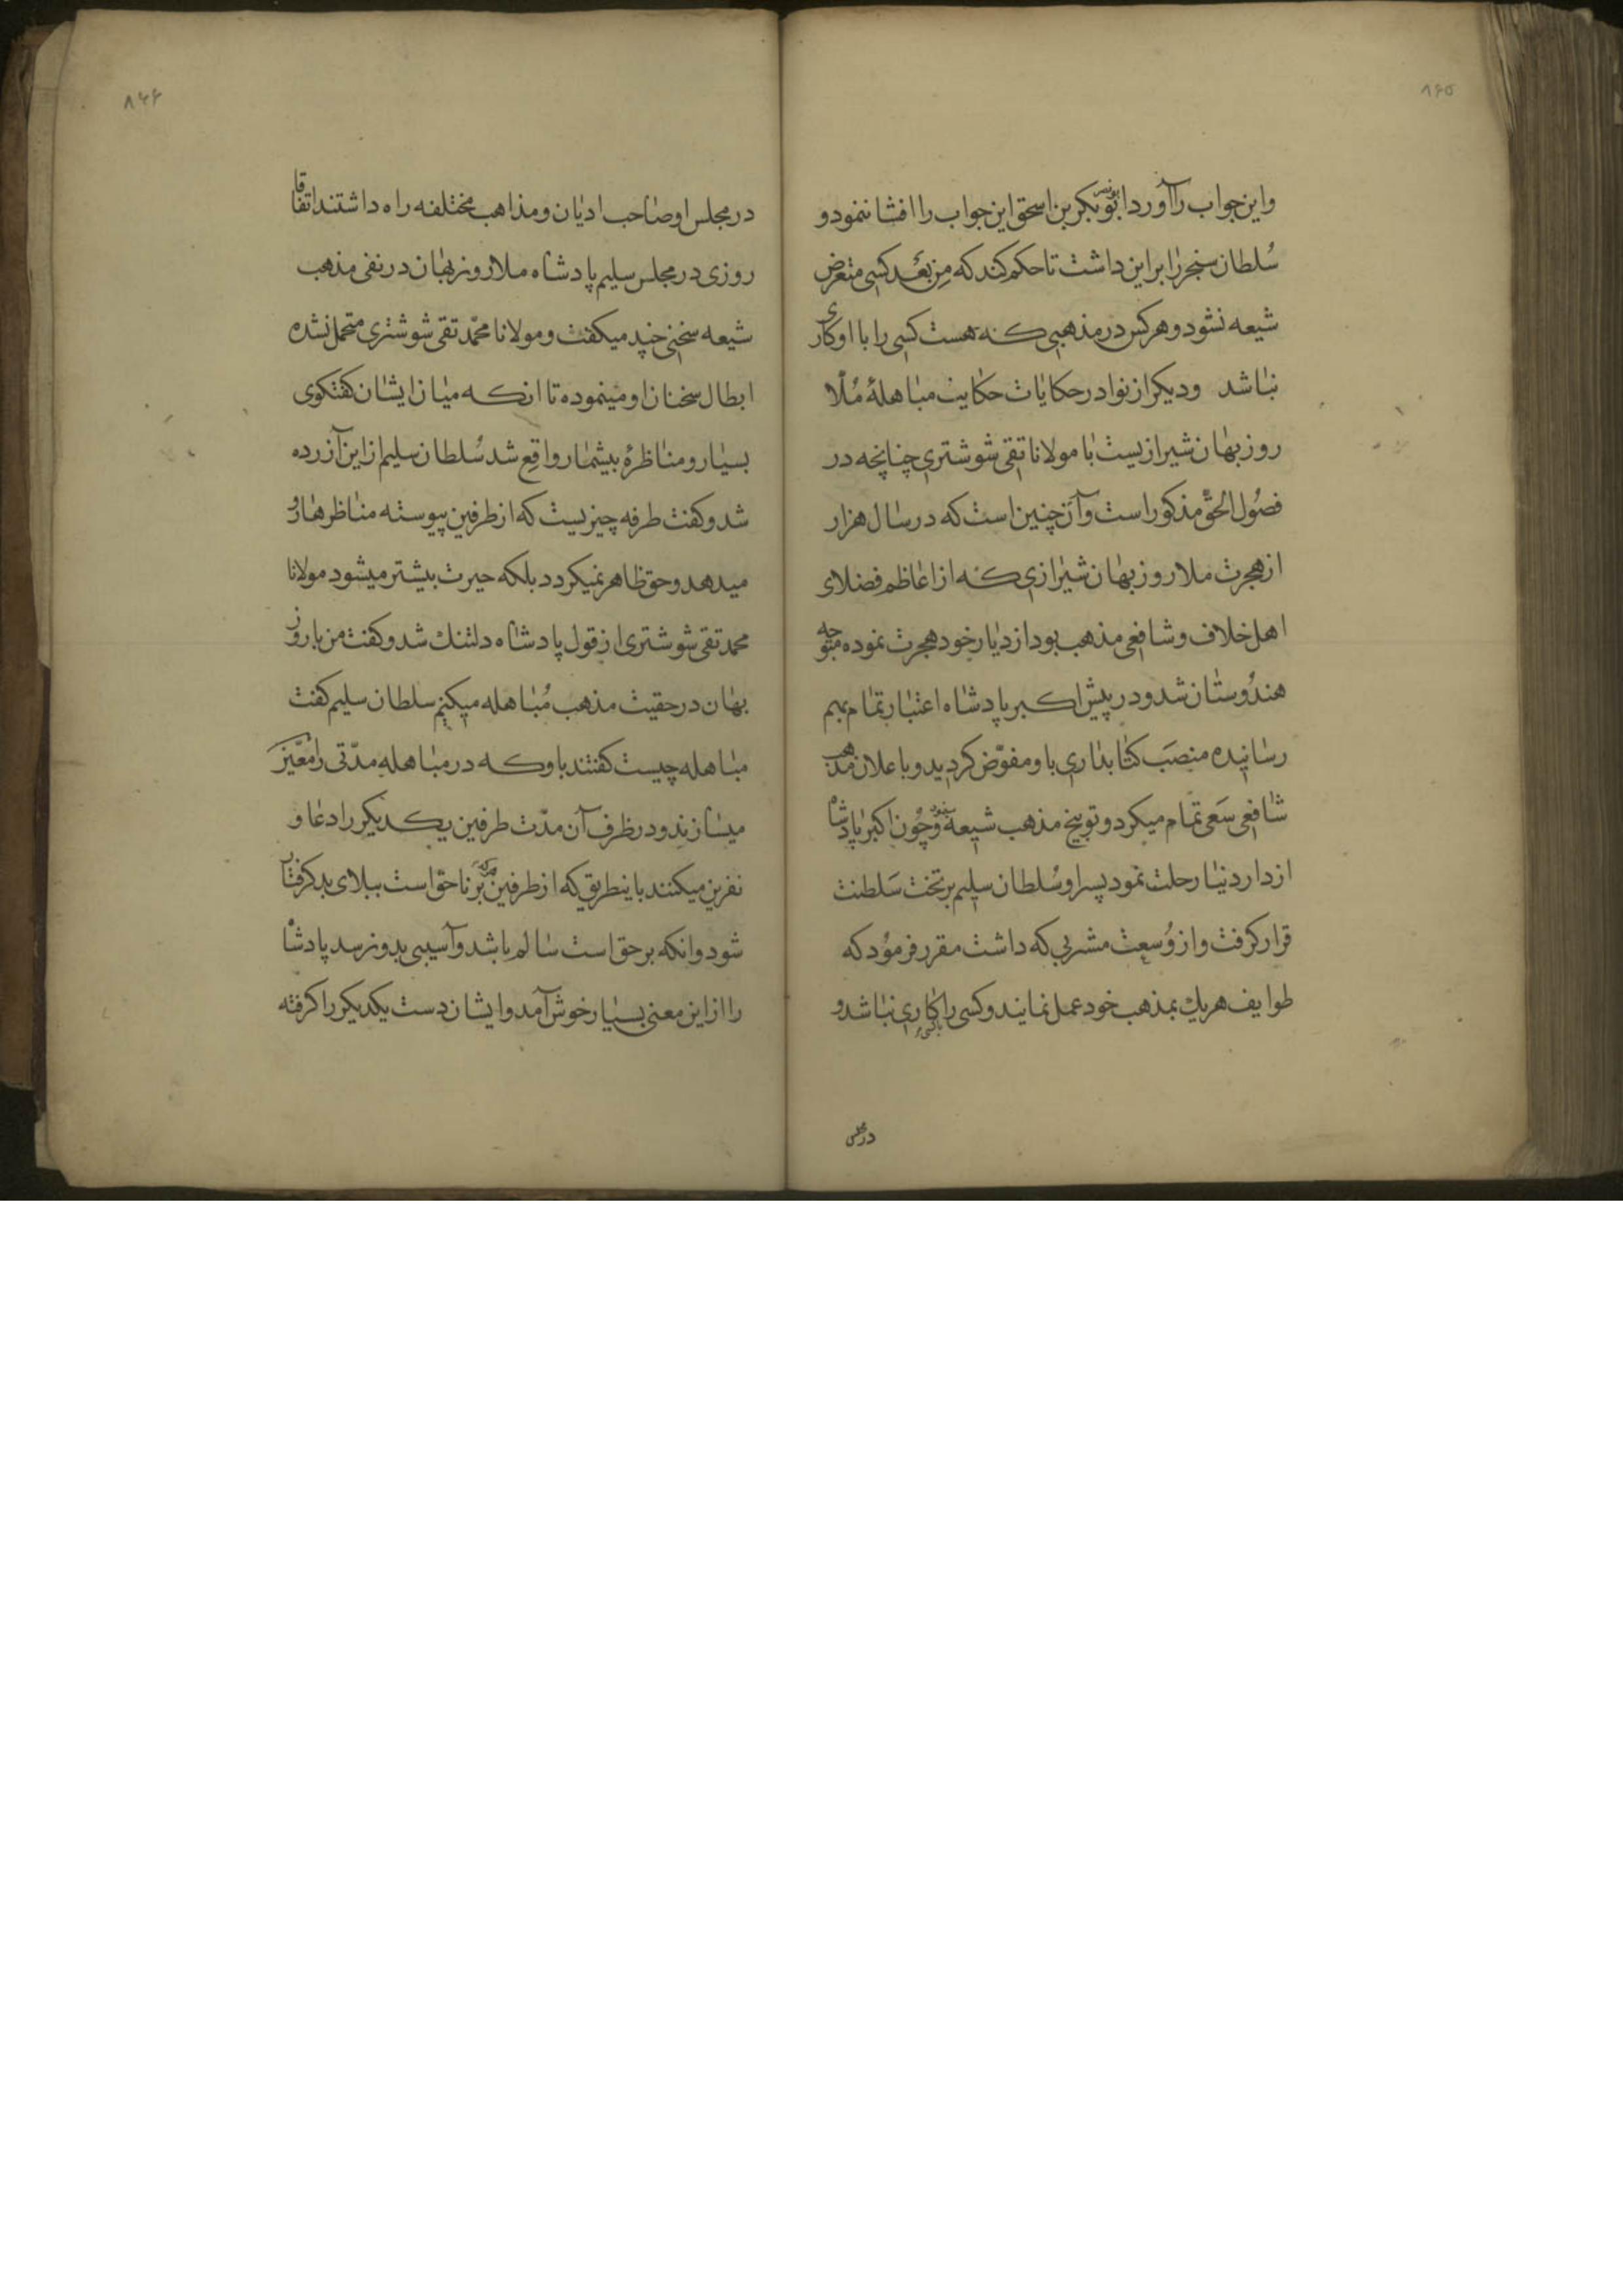 ۸۶۵
واین جواب را آورد ابو بکر بن اسحق این جواب را افشا ننمود و
سُلطان سنجر را بر این داشت تا حکم کند که مِن بَعد کسی متعرض
شیعه نشود و هر کس در مذهبی که هست کسی را با او کاری
نباشد و دیکر از نوادر حکایات حکایت مباهلهٔ مُلّا
روزبهان شیرازیست با مولانا تقی شوشتری چنانچه در
فصُول الحق مذکور است و آن چنین است که در سال هزار
از هجرت ملا روزبهان شیرازی که از اعاظم فضلای
اهل خلاف و شافعی مذهب بود از دیار خود هجرت نموده متوجه
هندُوستان شد و در پیش اکبر پادشاه اعتبار تمام بهم
رسانیده منصَب کتابداری باو مفوّض کردید و با علان مذهب
شافعی سَعی تمام میکرد و توبیخ مذهب شیعه مینمود و چُون اکبر پادشاه
از دار دنیا رحلت نمود پسر او سُلطان سلیم بر تخت سَلطنت
قرار کرفت و از وُسعت مشربی که داشت مقرر فرمُود که
طوایف هر یك بمذهب خود عمل نمایند و کسی را با کسی کاری نباشد و
در مجلس
۸۶۶
در مجلس او صاحب ادیان و مذاهب مختلفه راه داشتند اتفاقا
روزی در مجلس سلیم پادشاه ملا روزبهان در نفی مذهب
شیعه سخنی چند میکفت و مولانا محمّد تقی شوشتری متحمل نشده
ابطال سخنان او مینموده تا انکه میان ایشان کفتکوی
بسیار و مناظرهٔ بیشمار واقع شد سُلطان سلیم از این آزرده
شد و کفت طرفه چیزیست که از طرفین پیوسته مناظرها رو
میدهد و حق ظاهر نمیکردد بلکه حیرت بیشتر میشود مولانا
محمد تقی شوشتری از قول پادشاه دلتنك شد و کفت من با روز
بهان در حقیت مذهب مُباهله میکنم سلطان سلیم کفت
مباهله چیست کفتند باو که در مباهله مدّتی را معیّن
میسازند و در ظرف آن مدّت طرفین یکدیکر را دعا و
نفرین میکنند باینطریق که از طرفین هر که بر ناحق است ببلای بد کرفتار
شود و انکه بر حق است سالم باشد و آسیبی بدو نرسد پادشاه
را از این معنی بسیار خوش آمد و ایشان دست یکدیکر را کرفته